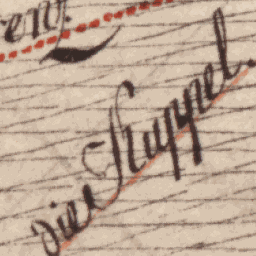 en.
die Kuppel.